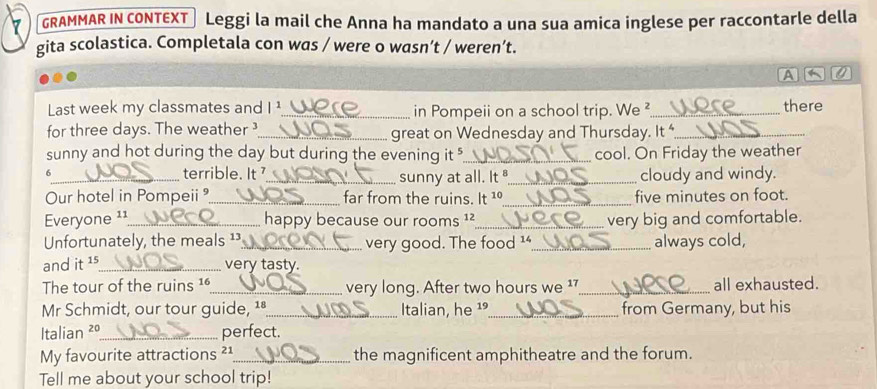 7 GRAMMAR IN CONTEXT Leggi la mail che Anna ha mandato a una sua amica inglese per raccontarle della
gita scolastica. Completala con was / were o wasn't / weren't.
A
Last week my classmates and I ¹ were in Pompeii on a school trip. We ² were there
for three days. The weather ³ was great on Wednesday and Thursday. It ⁴ was
sunny and hot during the day but during the evening it ⁵ wasn't cool. On Friday the weather
⁶ was terrible. It ⁷ wasn't sunny at all. It ⁸ was cloudy and windy.
Our hotel in Pompeii ⁹ was far from the ruins. It ¹⁰ was five minutes on foot.
Everyone ¹¹ were happy because our rooms ¹² were very big and comfortable.
Unfortunately, the meals ¹³ weren't very good. The food ¹⁴ was always cold,
and it ¹⁵ was very tasty.
The tour of the ruins ¹⁶ was very long. After two hours we ¹⁷ were all exhausted.
Mr Schmidt, our tour guide, ¹⁸ was Italian, he ¹⁹ was from Germany, but his
Italian ²⁰ was perfect.
My favourite attractions ²¹ was the magnificent amphitheatre and the forum.
Tell me about your school trip!